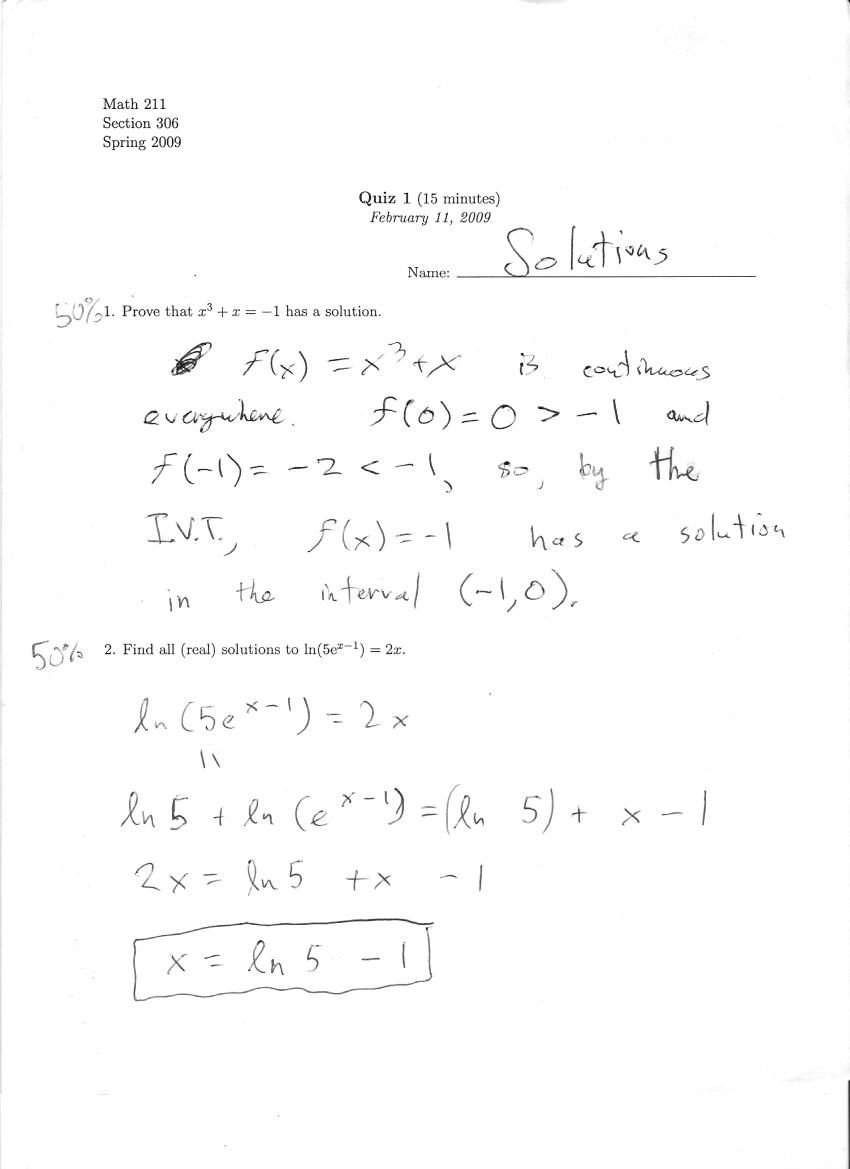 Math 211
Section 306
Spring 2009
Quiz 1 (15 minutes)
February 11, 2009
Name: Solutions
50% 1. Prove that x³ + x = −1 has a solution.
f(x) = x³+x is continuous
everywhere. f(0) = 0 > −1 and
f(−1) = −2 < −1, so, by the
I.V.T., f(x) = −1 has a solution
in the interval (−1,0).
50% 2. Find all (real) solutions to ln(5eˣ⁻¹) = 2x.
ln(5eˣ⁻¹) = 2x
||
ln 5 + ln(eˣ⁻¹) = (ln 5) + x − 1
2x = ln 5 + x − 1
x = ln 5 − 1